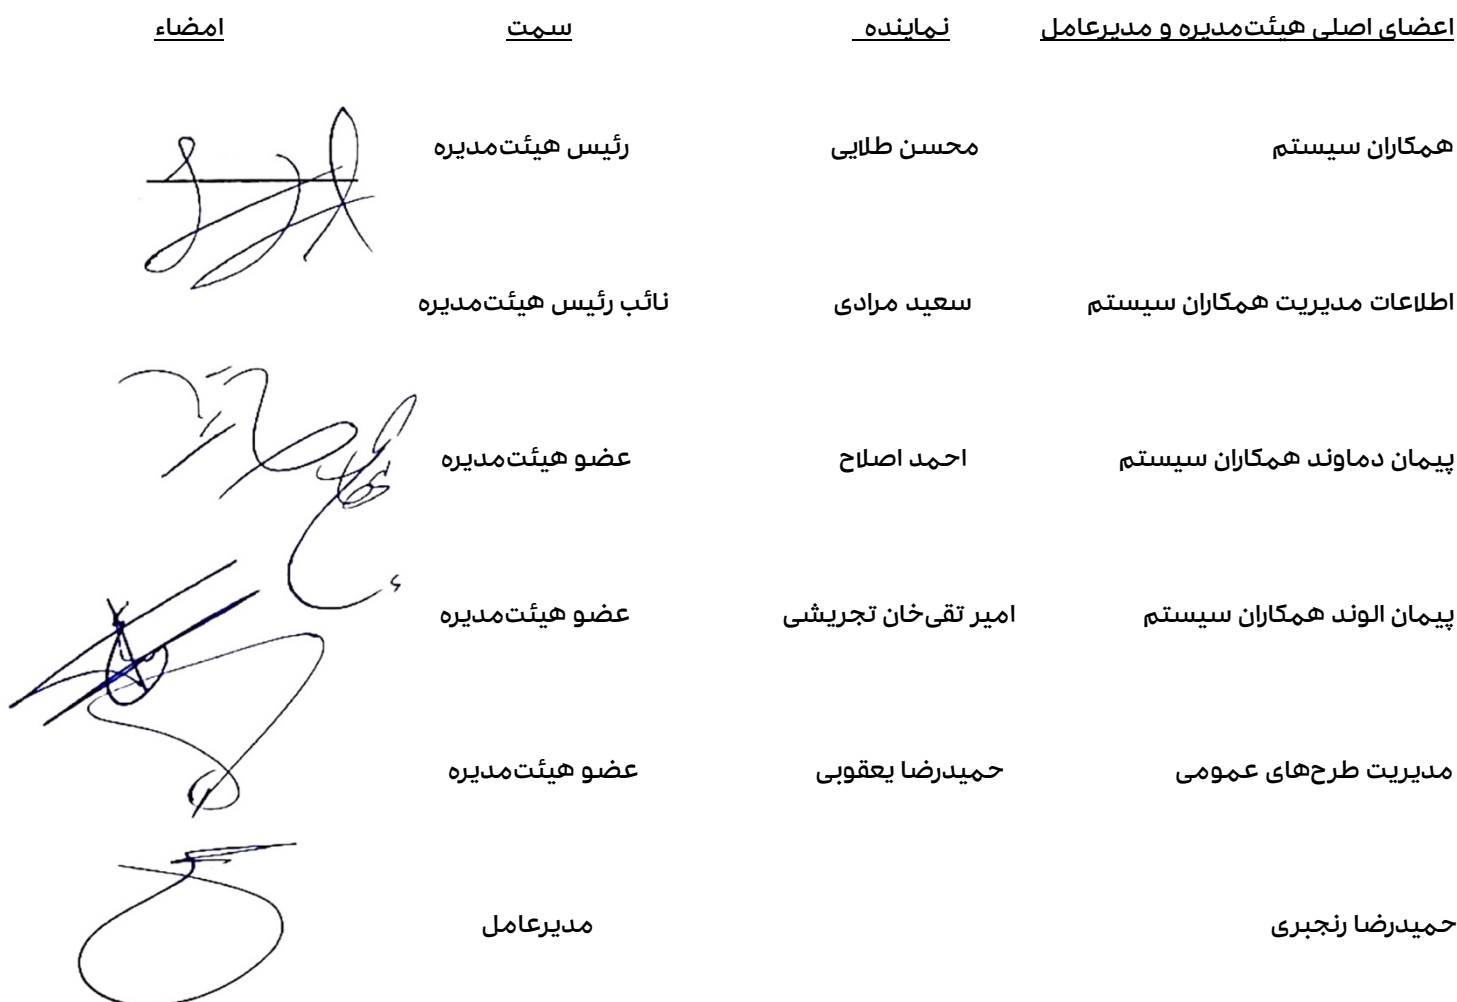 اعضای اصلی هیئت‌مدیره و مدیرعامل نماینده سمت امضاء
همکاران سیستم محسن طلایی رئیس هیئت‌مدیره
اطلاعات مدیریت همکاران سیستم سعید مرادی نائب رئیس هیئت‌مدیره
پیمان دماوند همکاران سیستم احمد اصلاح عضو هیئت‌مدیره
پیمان الوند همکاران سیستم امیر تقی‌خان تجریشی عضو هیئت‌مدیره
مدیریت طرح‌های عمومی حمیدرضا یعقوبی عضو هیئت‌مدیره
حمیدرضا رنجبری مدیرعامل